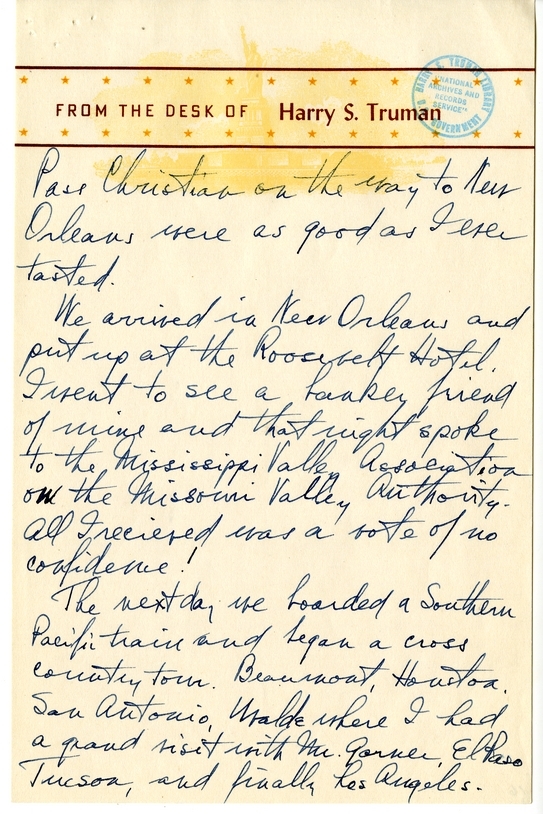 FROM THE DESK OF Harry S. Truman
HARRY S. TRUMAN LIBRARY
"NATIONAL
ARCHIVES AND
RECORDS
SERVICE"
U.S. GOVERNMENT
Pass Christian on the way to New
Orleans were as good as I ever
tasted.
We arrived in New Orleans and
put up at the Roosevelt Hotel.
I went to see a banker friend
of mine and that night spoke
to the Mississippi Valley Association
on the Missouri Valley Authority.
All I recieved was a vote of no
confidence!
The next day we boarded a Southern
Pacific train and began a cross
country tour. Beaumont, Houston,
San Antonio, Uvalde where I had
a grand visit with Mr. Garner, El Paso
Tucson, and finally Los Angeles.